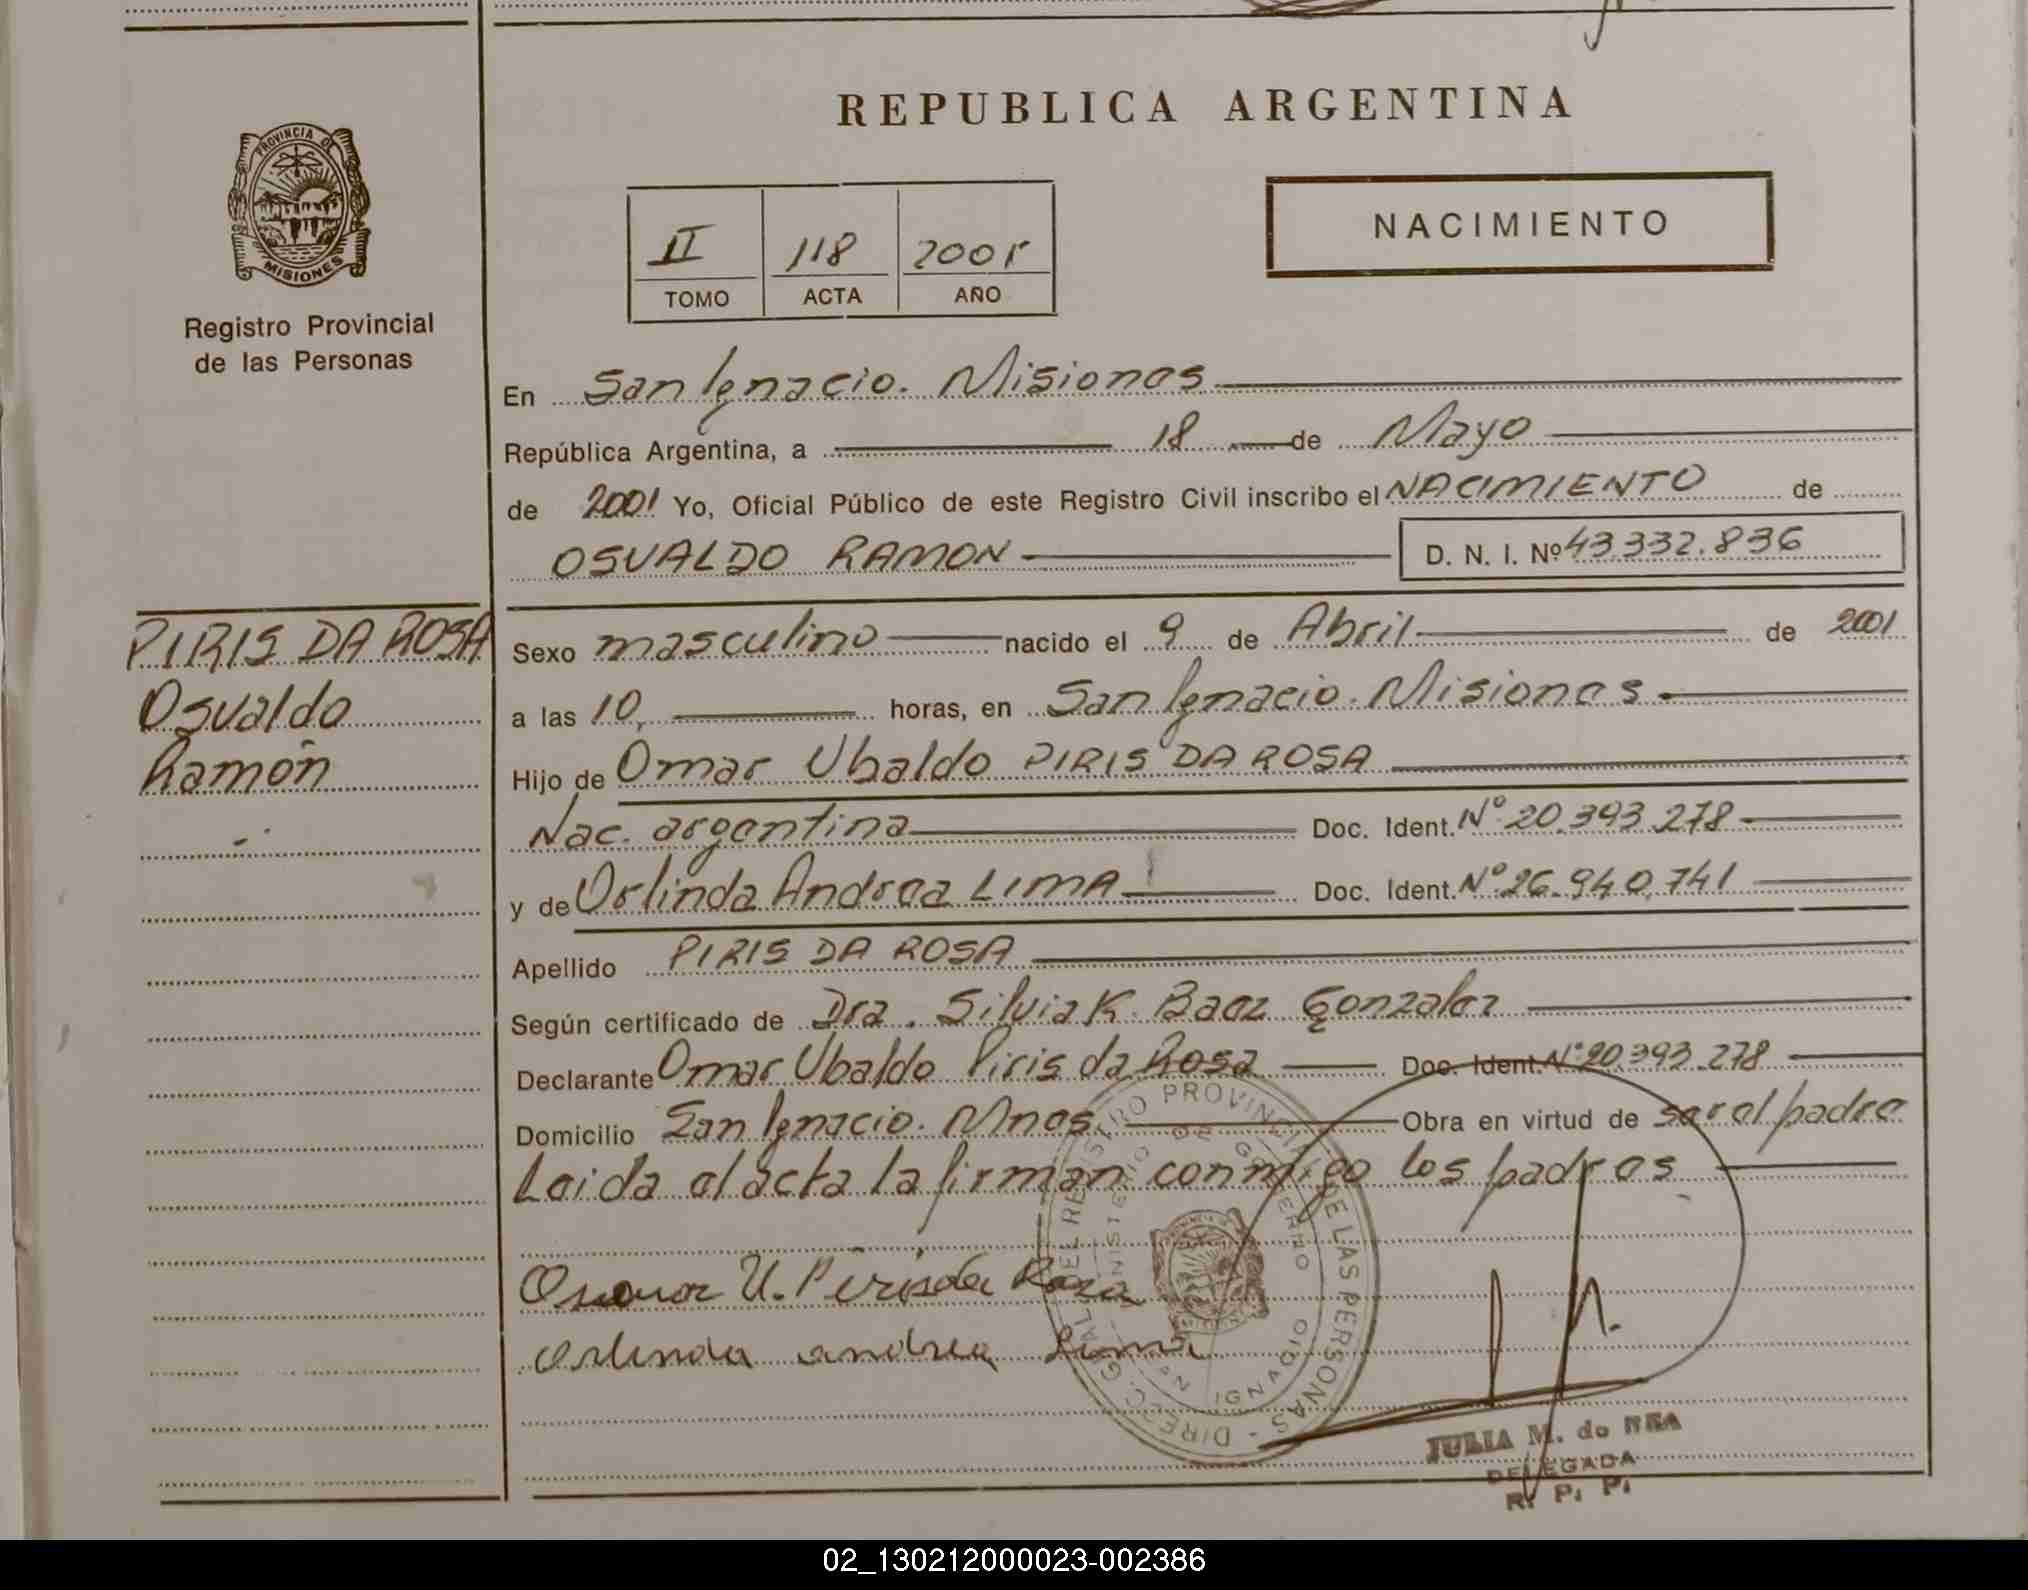 REPUBLICA ARGENTINA
PROVINCIA DE
MISIONES
Registro Provincial
de las Personas
II 118 2001
TOMO ACTA AÑO
NACIMIENTO
En San Ignacio. Misiones
República Argentina, a 18 de Mayo
de 2001 Yo, Oficial Público de este Registro Civil inscribo el NACIMIENTO de
OSVALDO RAMON D. N. I. Nº 43.332.836
PIRIS DA ROSA
Osvaldo
Ramón
Sexo masculino nacido el 9 de Abril de 2001
a las 10, horas, en San Ignacio. Misiones
Hijo de Omar Ubaldo PIRIS DA ROSA
Nac. argentina Doc. Ident. Nº 20.393.278
y de Orlinda Andrea LIMA Doc. Ident. Nº 26.940.741
Apellido PIRIS DA ROSA
Según certificado de Dra. Silvia K. Baez Gonzalez
Declarante Omar Ubaldo Piris da Rosa Doc. Ident. Nº 20.393.278
Domicilio San Ignacio. Mnes. Obra en virtud de ser el padre
Leida el acta la firman conmigo los padres
Omar U. Piris da Rosa
Orlinda andrea Lima
DIRECC. GRAL. DEL REGISTRO PROVINCIAL DE LAS PERSONAS -
MINISTERIO DE GOBIERNO
SAN IGNACIO
JULIA M. de
DELEGADA
R. P. P.
02_130212000023-002386